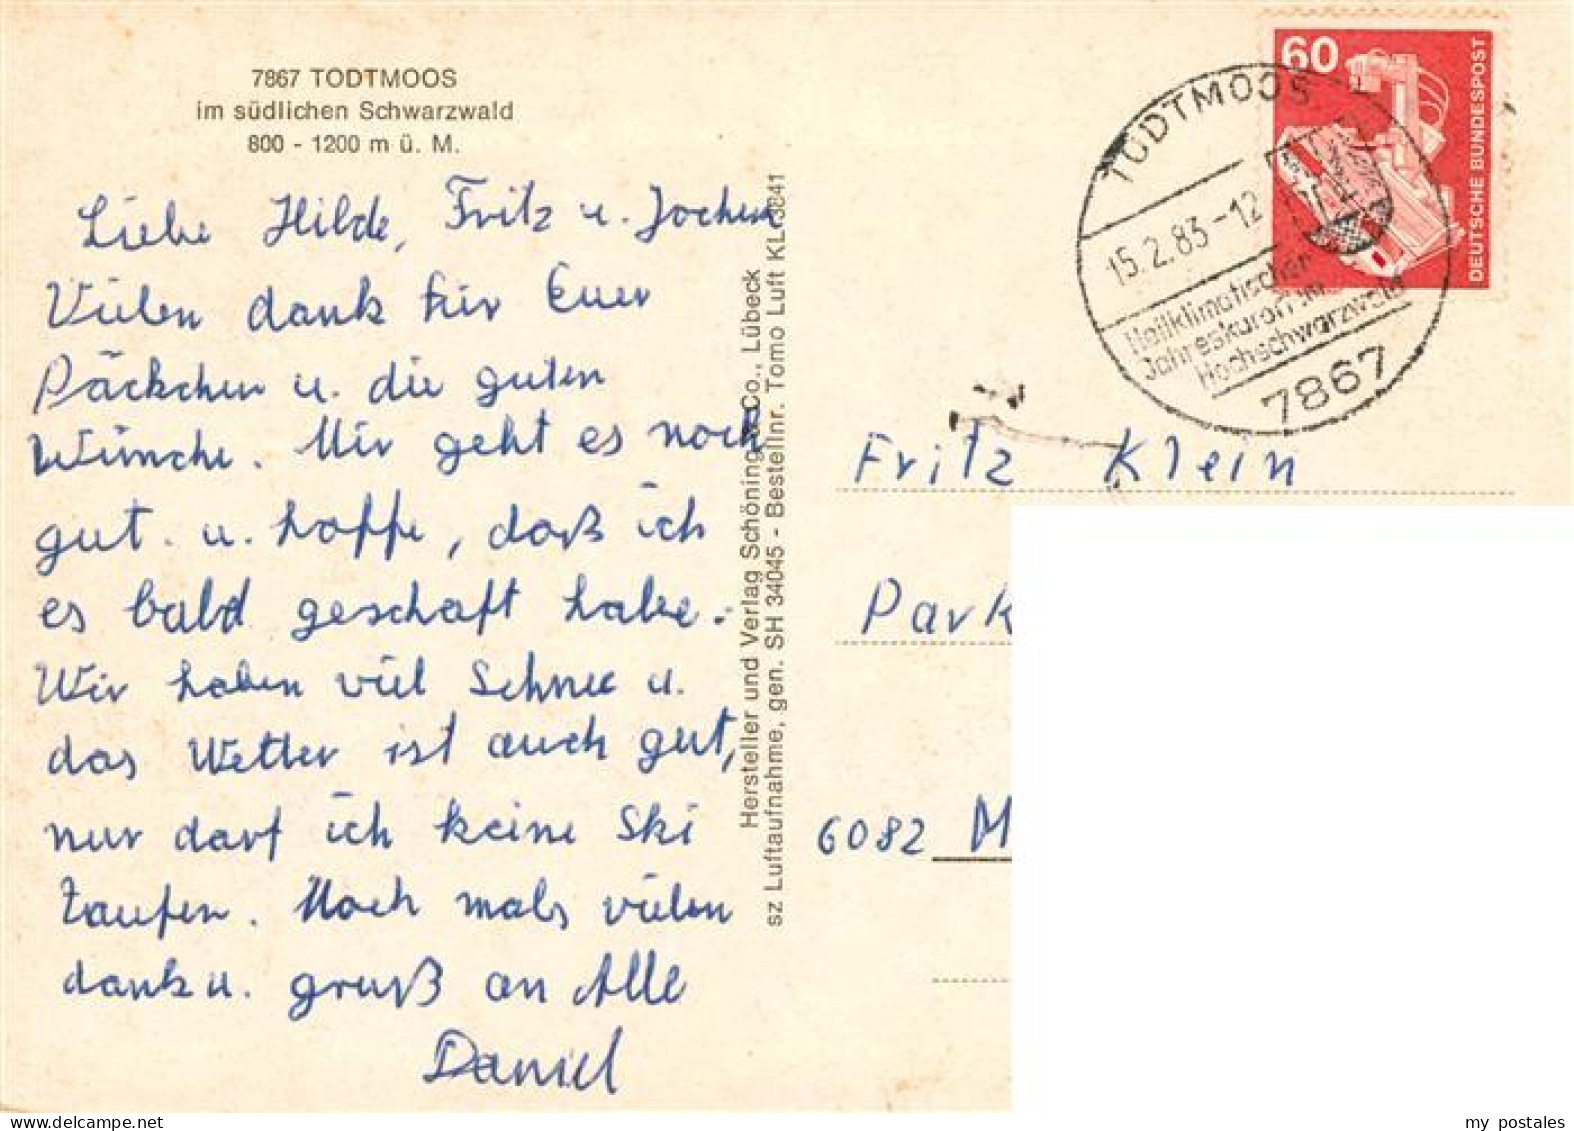 7867 TODTMOOS
im südlichen Schwarzwald
800 - 1200 m ü. M.
Liebe Hilde, Fritz u. Jochen
Vielen dank für Euer
Päckchen u. die guten
Wünche. Mir geht es noch
gut. u. hoffe, daß ich
es bald geschaft habe.
Wir haben viel Schnee u.
das Wetter ist auch gut,
nur darf ich keine Ski
laufen. Noch mals vielen
dank u. gruß an Alle
Daniel
Hersteller und Verlag Schöning & Co., Lübeck
sz Luftaufnahme, gen. SH 34045 - Bestellnr. Tomo Luft KL 3841
60
DEUTSCHE BUNDESPOST
TODTMOOS 1
15.2.83-12
Heilklimatischer
Jahreskurort im
Hochschwarzwald
7867
Fritz Klein
Park
6082 M
my postales